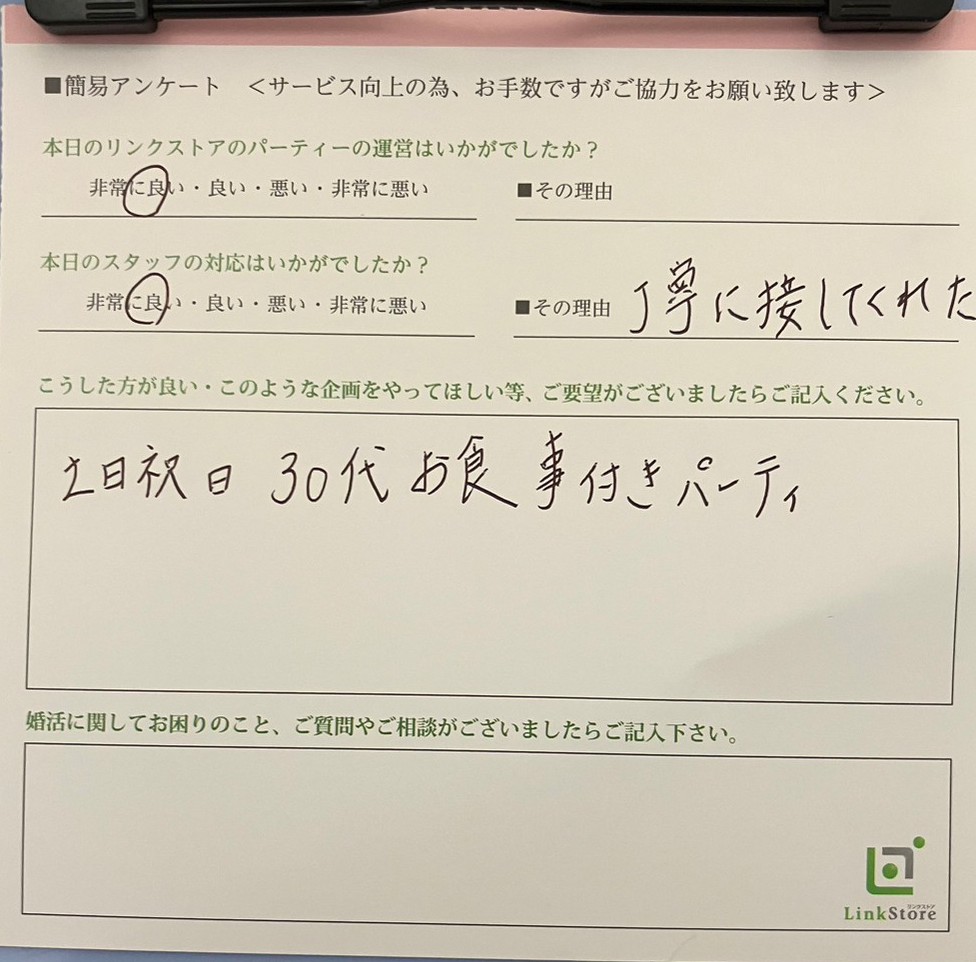 ■簡易アンケート <サービス向上の為、お手数ですがご協力をお願い致します>
本日のリンクストアのパーティーの運営はいかがでしたか？
非常に良い・良い・悪い・非常に悪い ■その理由
本日のスタッフの対応はいかがでしたか？
非常に良い・良い・悪い・非常に悪い ■その理由 丁寧に接してくれた
こうした方が良い・このような企画をやってほしい等、ご要望がございましたらご記入ください。
土日祝日 30代 お食事付きパーティ
婚活に関してお困りのこと、ご質問やご相談がございましたらご記入下さい。
リンクストア
LinkStore